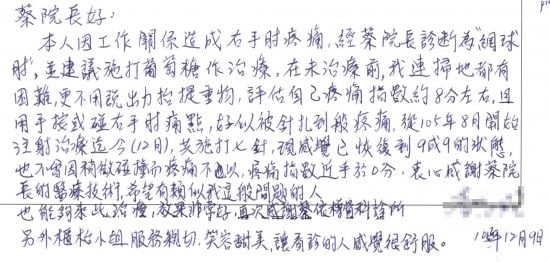 蔡院長好:
本人因工作關係造成右手肘疼痛,經蔡院長診斷為"網球
肘",並建議施打葡萄糖作治療,在未治療前,我連掃地都有
困難,更不用說出力抬提重物,評估自己疼痛指數約8分左右,且
用手按或碰右手肘痛點,好似被針扎到般疼痛,從105年8月開始
注射治療迄今(12月),共施打七針,現感覺已恢復到9成9的狀態,
也不曾因稍微碰撞而疼痛不已,疼痛指數近乎於0分,衷心感謝蔡院
長的醫療技術,希望有類似我這般問題的人
也能夠來此治療,效果非常好,再次感謝蔡依橙骨科診所
另外櫃枱小姐服務親切,笑容甜美,讓看診的人感覺很舒服。
105年12月9日